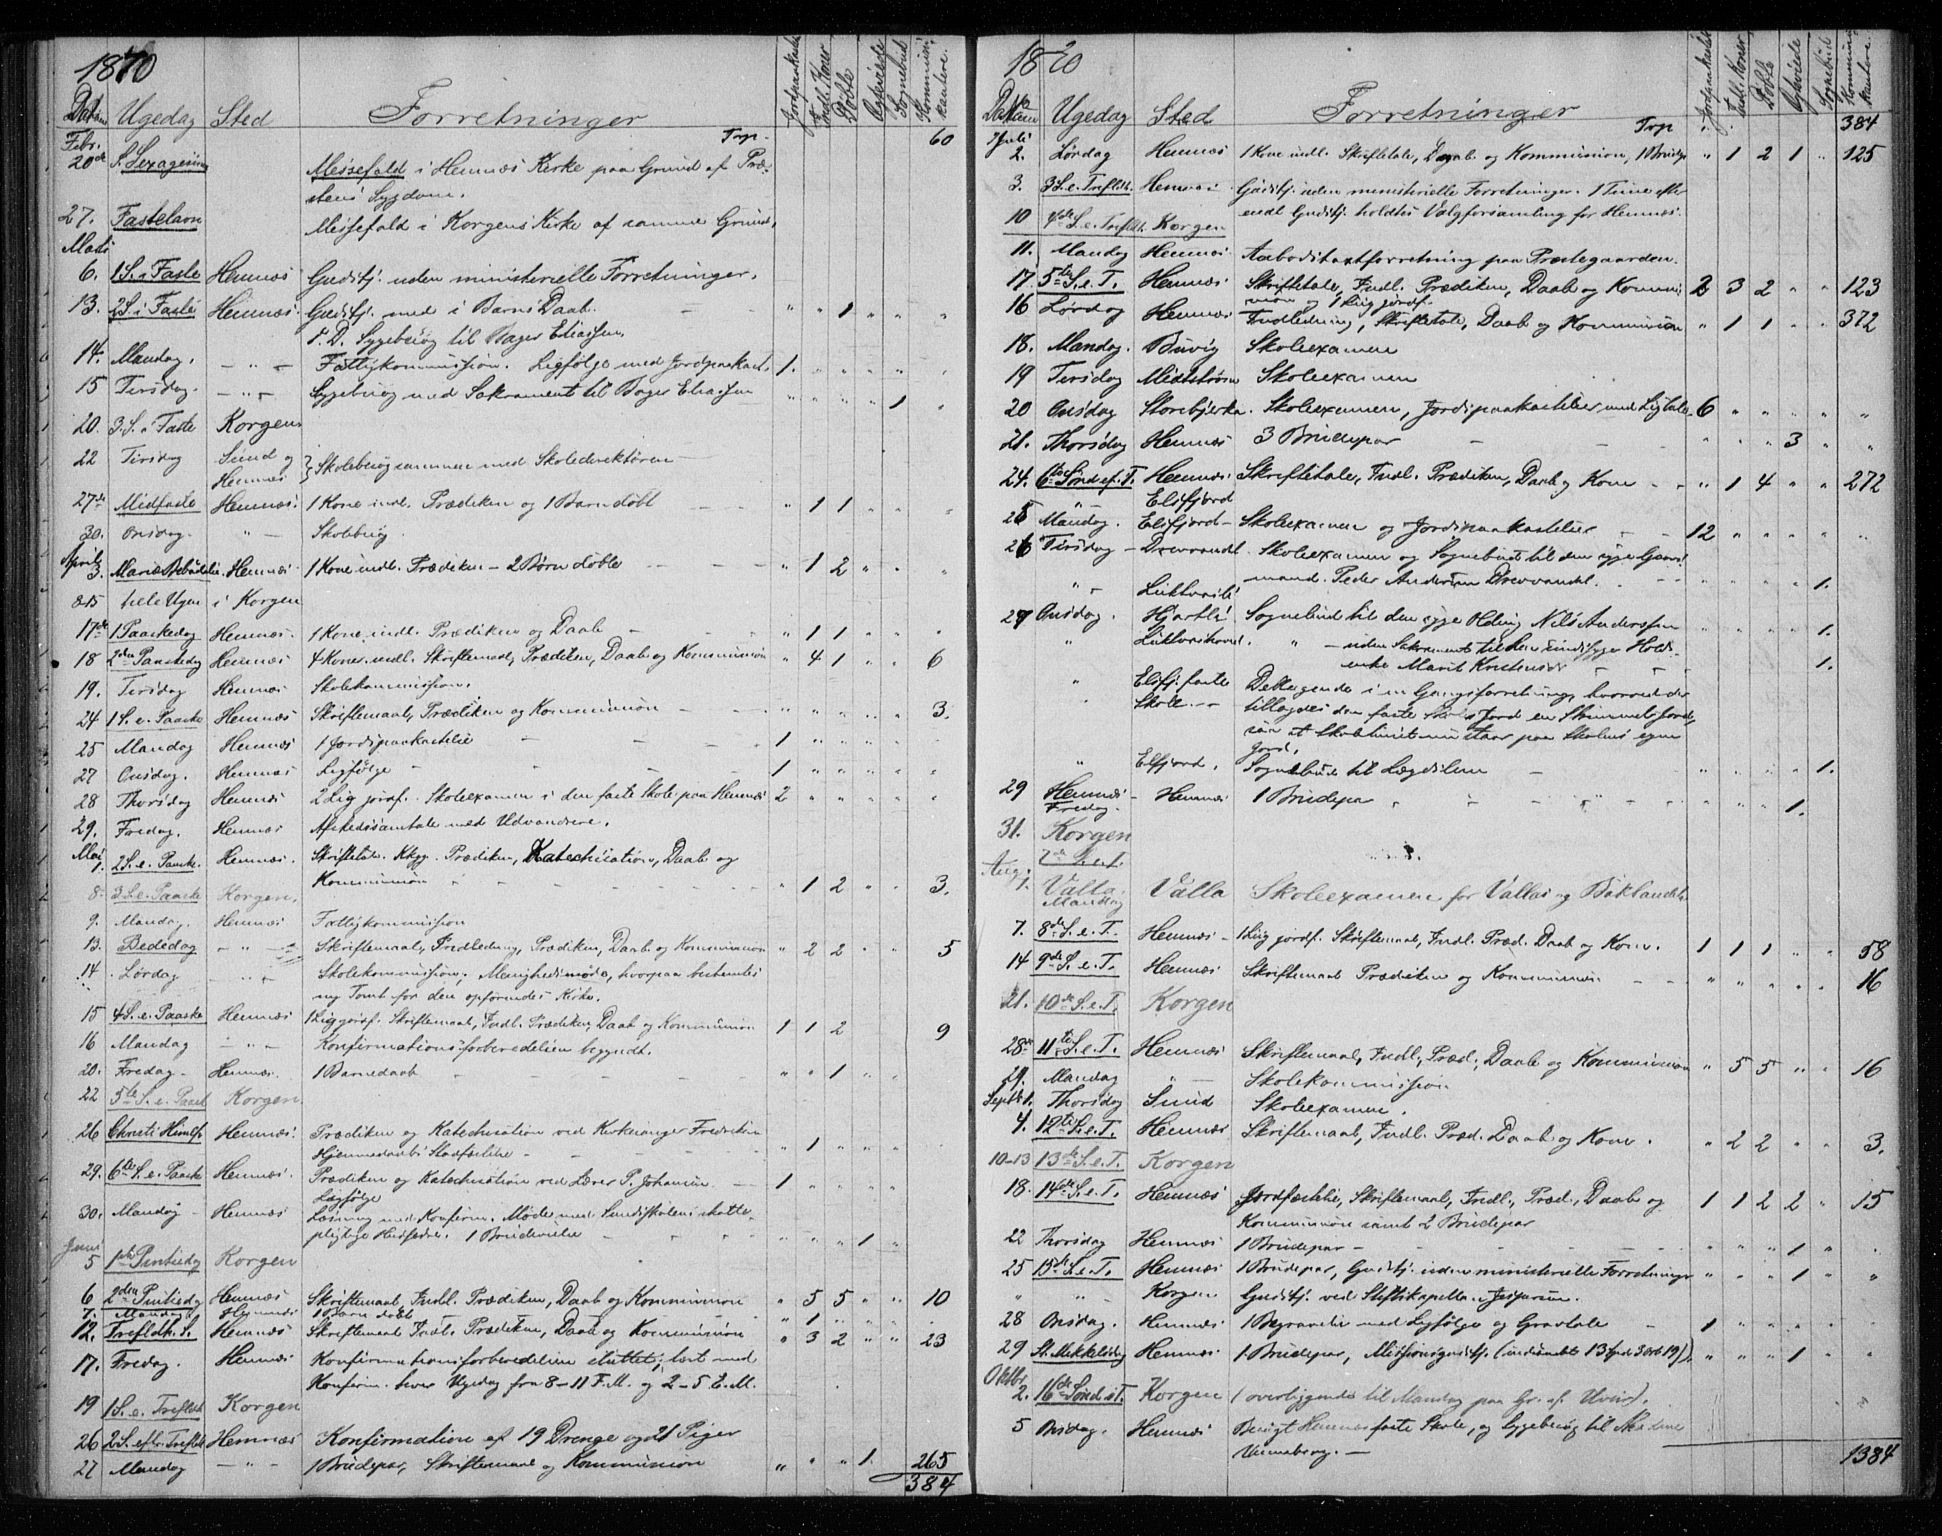 1870
Datum Ugedag Sted Forretninger Jordpaakastelse Indl. Koner Døbte Ægteviede Sognebud Kommunikantere
Febr. Trp. 60
20de S. Sexagesima Messefald i Hemnæs Kirke paa Grund af Præ-
stens Sygdom.
27. Fastelavn Messefald i Korgens Kirke af samme Grund.
Marts
6. 1 S. i Faste Hemnæs Gudstj. uden ministerielle Forretninger.
13. 2 S. i Faste Hemnæs. Gudstj. med i Barns Daab. - - " " 1 " " "
S. D. Sygebesøg til Bager Eliassen.
14. Mandag. - " - Fattigkommission. Ligfølge med Jordpaakast. 1. " " " " "
15 Tirsdag. - " - Sygebesøg med Sakrament til Bager Eliassen " " " " 1 "
20. 3. S. i Faste Korgen
22 Tirsdag Sund og
Hemnæs } Skolebesøg sammen med Skoledirektøren
27de Midfaste Hemnæs. 1 Kone indl. Prædiken og 1 Barn døbt - - " 1 1 " " "
30. Onsdag. " - Skolebesøg.
April
3. Mariæ Bebudelse. Hemnæs 1 Kone indl. Prædiken - 2 Børn døbte - - - " 1 2 " " "
8-15 hele Ugen i Korgen
17de 1 Paaskedag Hemnæs. 1 Kone indl. Prædiken og Daab - - " 1 1 " " "
18 2den Paaskedag Hemnæs 4 Koner indl. Skriftemaal, Prædiken, Daab og Kommunion " 4 1 " " 6
19. Tirsdag Hemnæs Skolekommission.
24 1 S. e. Paaske Hemnæs Skriftemaal, Prædiken og Kommunion - - " " " " " 3.
25 Mandag Hemnæs 1 Jordspaakastelse - - - 1 " " " " "
27 Onsdag. Hemnæs Ligfølge - - - 1 " " " " "
28 Thorsdag Hemnæs 2 Lig jordf. Skoleexamen i den faste Skole paa Hemnæs 2 " " " " "
29. Fredag. Hemnæs Afskedssamtale med Udvandrere.
Mai
1. 2 S. e. Paaske. Hemnæs. Skriftetale. Prædiken, Katechisation, Daab og
Kommunion - - - " 1 2 " " 3.
8. 3 S. e. Paaske Korgen.
9. Mandag. Hemnæs Fattigkommission
13. Bededag - " - Skriftemaal, Indledning, Prædiken, Daab og Kommunion " 2 2 " " 5
14 Lørdag " " Skolekommission, Menighedsmøde, hvorpaa bestemtes
ny Tomt for den opførendes Kirke.
15 4 S. e. Paaske Hemnæs 1 Lig jordf. Skriftemaal, Indl. Prædiken, Daab og Kommunion 1 1 2 " " 9
16 Mandag - " - Konfirmationsforberedelsen begyndt.
20. Fredag - Hemnæs. 1 Barnedaab - - - " " 1 " " "
22 5te S. e. Paask Korgen.
26 Christi Himlf. Hemnæs. Prædiken og Katechisation ved Kirkesanger Fredriksen
Hjemmedaabs Stadfæstelse - - " 1 " " "
29. 6te S. e. Paaske Hemnæs. Prædiken og Katechisation ved Lærer P. Johansen. - 1 " " " "
Ligfølge
30. Mandag - Hemnæs Læsning med Konfirm. Møde med Sundsskolens skatte-
pligtige Husfædre. 1 Brudevielse - - " " " 1 " "
Juni
5 1ste Pintsedag Korgen
6 2den Pintsedag Hemnæs Skriftemaal, Indl. Prædiken, Daab og Kommunion " 5 5 " " 10
7. Mandag Hemnæs 1 Barn døbt " 1 " " " "
12. Trefoldh. S. Hemnæs Skriftemaal Indl. Prædiken, Daab og Kommunion " 3 2 " " 23
17. Fredag. Hemnæs Konfirmationsforberedelsen sluttet; læst med
Konfirm. hver Ugedag fra 8-11 F. M. og 2-5 E. M.
19 1 S. e. Trefoldh Korgen
26 2 S. efter Trefoldh Hemnæs Konfirmation af 19 Drenge og 21 Piger
27 Mandag - " - 1 Brudepar, Skriftemaal og Kommunion " " " 1. 265
384
1870
Datum Ugedag Sted Forretninger Jordpaakastelse Indl. Koner Døbte Ægteviede Sognebud Kommunikantere
Juli Trp " " 384
2. Lørdag Hemnæs 1 Kone indl. Skriftetale, Daab og Kommunion, 1 Brudepr " 1 2 1 " 125
3. 3 S. e. Trefoldh. Hemnæs Gudstj. uden ministerielle Forretninger. 1 Time efter
endt Gudstj. holdtes Valgforsamling for Hemnæs.
10 4de S. e. Trefoldh. Korgen
11. Mandag Hemnæs Aabodstaxtforretning paa Præstegaarden.
17. 5te S. e. T. Hemnæs Skriftetale, Indl. Prædiken, Daab og Kommu- 2 3 2 " " 123
nion og 1 Lig jordf.
16 Lørdag Hemnæs Indledning, Skriftetale, Daab og Kommunion " 1 1 " " 372
18. Mandag. Buvig Skoleexamen
19 Tirsdag Midtstrøm Skoleexamen
20 Onsdag Storebjerka. Skoleexamen, Jordspaakastelser med Ligtale 6 " " " " "
21. Thorsdag Hemnæs 3 Brudepar - - " " " 3 " "
24. 6te Sønd. ef. T. Hemnæs Skriftetale, Indl. Prædiken, Daab og Kom - - " 1 4 " " 272
" - Elsfjord
25 Mandag. Elsfjord - Skoleexamen og Jordspaakastelser - - 12 " " " " "
26 Tirsdag - Drevvandet. Skoleexamen og Sognebud til den syge Gaard-
mand Peder Andersen Drevvandet. - - " " " " 1.
" - Luktvasli
27 Onsdag. Hjartli Sognebud til den syge Olding Nils Andersen " " " " 1.
" Luktvasland. " - uden Sakrament til den sindssyge Hold-
enke Marit Kristensdr - - 1.
" Elsfj. faste Deltagende i en Gangsforretning, hvorved der
Skole. - - tillagdes den faste Skoles Jord en Strimmel Jord,
saa at Skolehuset nu staar paa Skolens egen
Jord.
" Elsfjord. Sognebud til Lægdslem - " " " " 1.
29 Hemnæs - Hemnæs 1 Brudepar " - " - " " " 1.
Fredag.
31. Korgen
7de S. e. T.
Aug.
1. Valla. Valla Skoleexamen for Vallas og Baklandets
Mandag
7. 8de S. e. T. Hemnæs - 1 Lig jordf. Skriftemaal, Indl. Præd. Daab og Kom. 1 1 1 " " 58
14 9de S. e. T. Hemnæs Skriftemaal Prædiken og Kommunion - - " " " " " 16
21. 10de S. e. T. Korgen
28de 11te S. e. T. Hemnæs Skriftemaal, Indl., Præd., Daab og Kommunion " 5 5 " " 16
29. Mandag " - Skolekommission
Septbr 1. Thorsdag Sund Skoleexamen.
4. 12te S. e. T. Hemnæs Skriftemaal, Indl. Præd. Daab og Kom. " 2 2 " " 3.
10-13 13de S. e. T. Korgen
18. 14de S. e. T. Hemnæs Jordfæstelse, Skriftemaal, Indl., Præd., Daab og 1 1 2 2 " 15
Kommunion samt 2 Brudepar
22 Thorsdag Hemnæs 1 Brudepar - - " " " 1 " "
25 15de S. e. T. Hemnæs 1 Brudepar, Gudstj. uden ministerielle Forretninger " " " 1 " "
" " - Korgen Gudstj. ved Stiftskapellan Jespersen.
28 Onsdag. Hemnæs 1 Begravelse med Ligfølge og Gravtale - 1 " " " " "
29 St. Mikkelsdag Hemnæs 1 Brudepar, Missionsgudstj. (indsamlet 13 Spd 3 ort 19 ß). " " " 1 " "
Oktbr.
2. 16de Sønd. e. T. Korgen (overliggende til Mandag paa Gr. af Uveir).
5 Onsdag. Hemnæs Besøgt Hemnæs faste Skole, og Sygebesøg til Madame
Vinneberg. -
1384